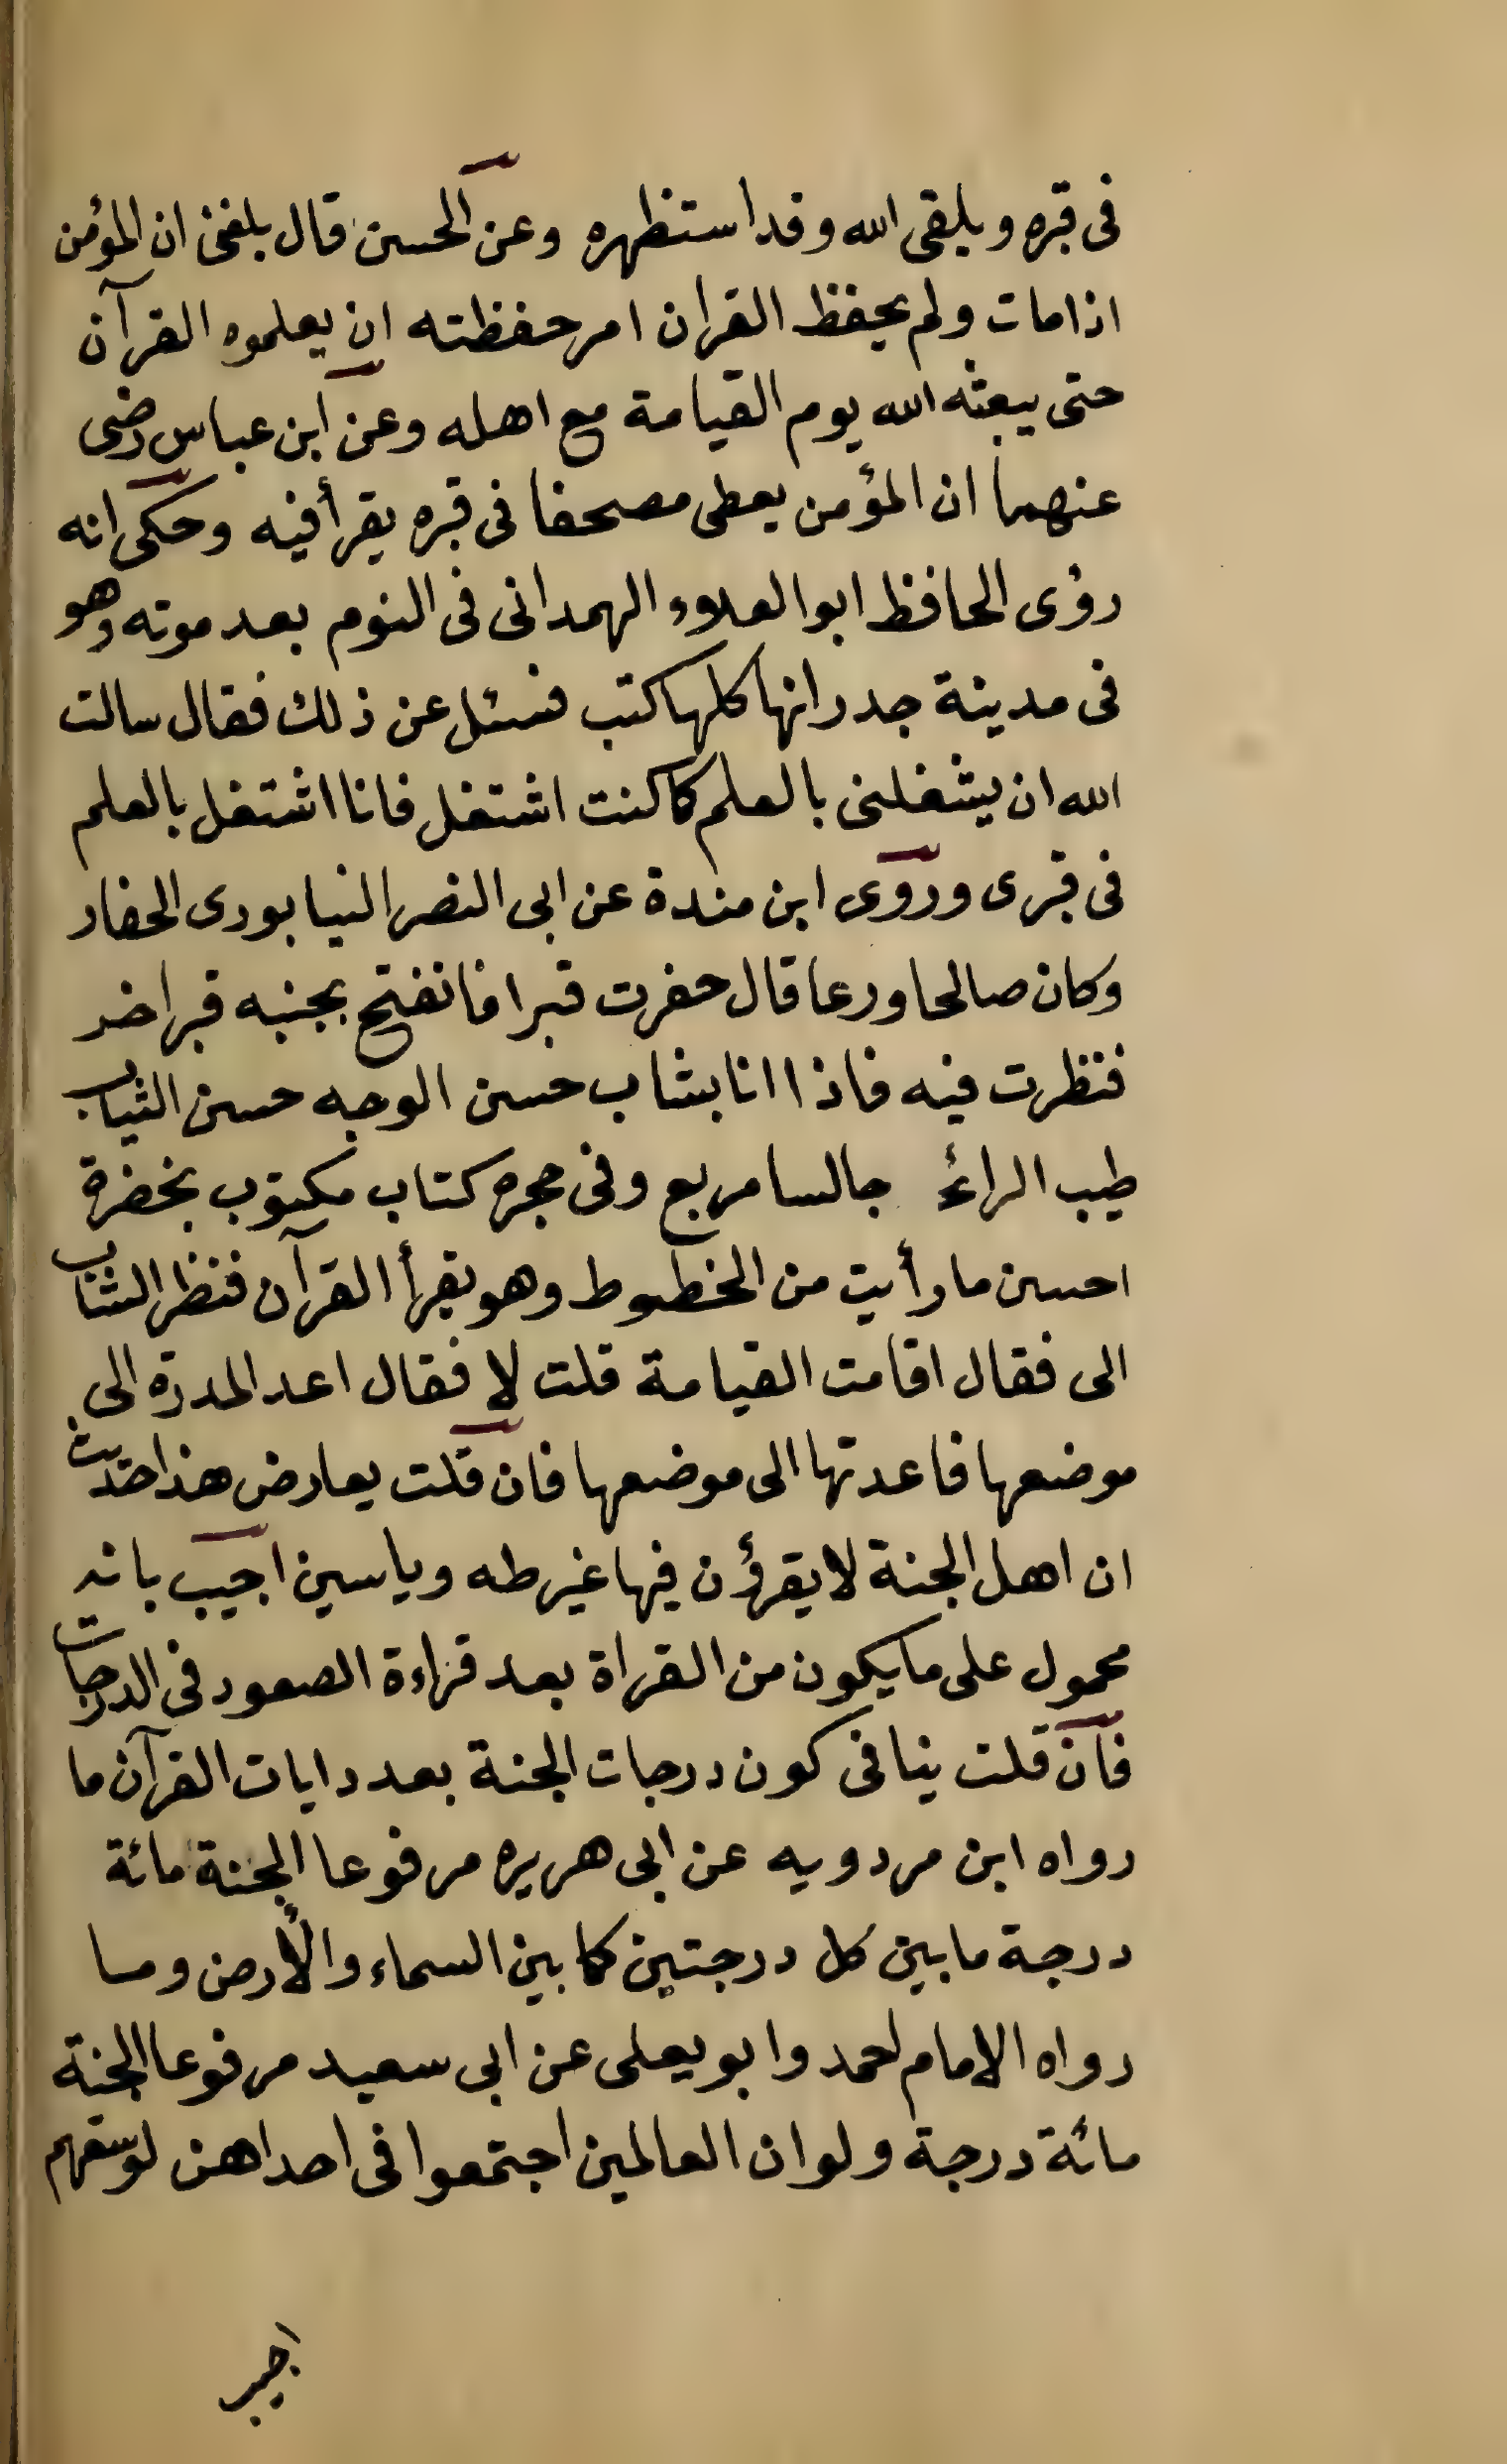 فى قبره ويلقى الله وقد استظهره وعن الحسن قال بلغنى ان المؤمن
اذا مات ولم يحفظ القران امر حفظته ان يعلموه القرآن
حتى يبعثه الله يوم القيامة مع اهله وعن ابن عباس رضى
عنهما ان المؤمن يعطى مصحفا فى قبره يقرأ فيه وحكى انه
رؤى الحافظ ابو العلاء الهمدانى فى النوم بعد موته وهو
فى مدينة جدرانها كلها كتب فسئل عن ذلك فقال سالت
الله ان يشغلنى بالعلم كما كنت اشتغل فانا اشتغل بالعلم
فى قبرى وروى ابن مندة عن ابى النصر النيابورى الحفار
وكان صالحا ورعا قال حفرت قبرا فانفتح بجنبه قبر اخر
فنظرت فيه فاذا انا بشاب حسن الوجه حسن الثياب
طيب الرائ جالسا مربع وفى حجره كتاب مكتوب بخضرة
احسن ما رأيت من الخطوط وهو يقرأ القرآن فنظر الشاب
الى فقال اقامت القيامة قلت لا فقال اعد المدرة الى
موضعها فاعدتها الى موضعها فان قلت يعارض هذا حديث
ان اهل الجنة لا يقرؤن فيها غير طه وياسين اجيب بانه
محمول على ما يكون من القراة بعد قراءة الصعود فى الدرجات
فان قلت ينافى كون درجات الجنة بعدد ايات القرآن ما
رواه ابن مردويه عن ابى هريره مرفوعا الجنة مائة
درجة ما بين كل درجتين كما بين السماء والأرض وما
رواه الامام احمد وابو يعلى عن ابى سعيد مرفوعا الجنة
مائة درجة ولو ان العالمين اجتمعوا فى احداهن لوسعتهم
اجيب